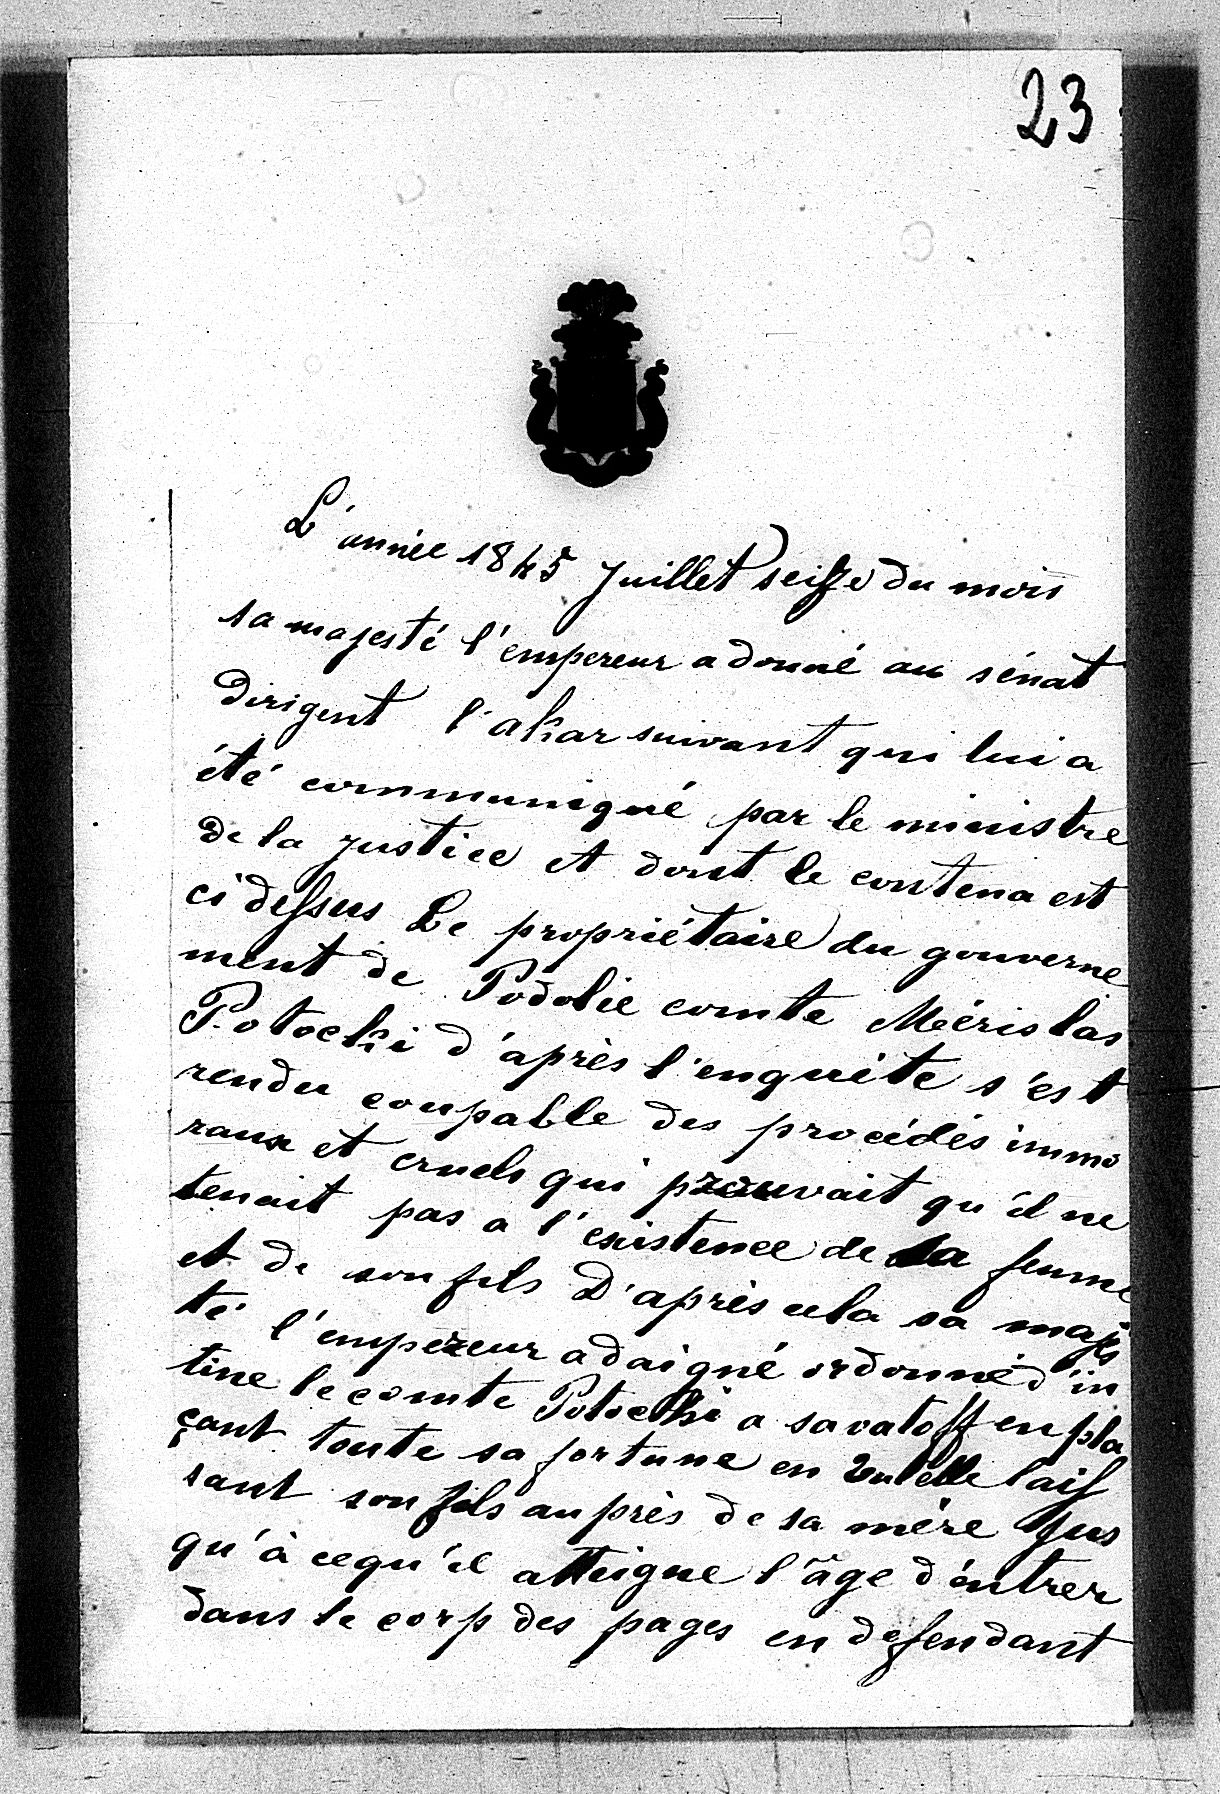 23
L'année 1845 Juillet seize du mois
sa majesté l'empereur a donné au sénat
dirigent l'akas suivant qui lui a
été communiqué par le ministre
de la justice et dont le contena est
ci dessus Le propriétaire du gouverne
ment de Podolie comte Mérislas
Potocki d'après l'enquête s'est
rendu coupable des procédés immo
raux et cruels qui prouvait qu'il ne
tenait pas a l'existence de sa femme
et de son fils D'après cela sa majes
té l'empereur a daigné ordonné d'in
tine le comte Potocki a savatoff en pla
çant toute sa fortune en tutelle lais
sant son fils auprès de sa mère Jus
qu'à cequ'il atteigne l'âge d'entrer
dans le corp des pages en defendant